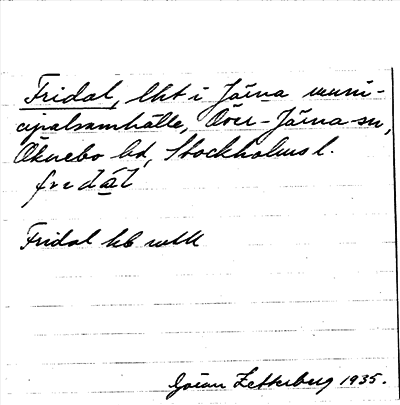 Fridal, lht i Järna muni-
cipalsamhälle, Över-Järna sn,
Öknebo hd, Stockholms l.
fredȧl
Fridal hb
Göran Zetterberg 1935.